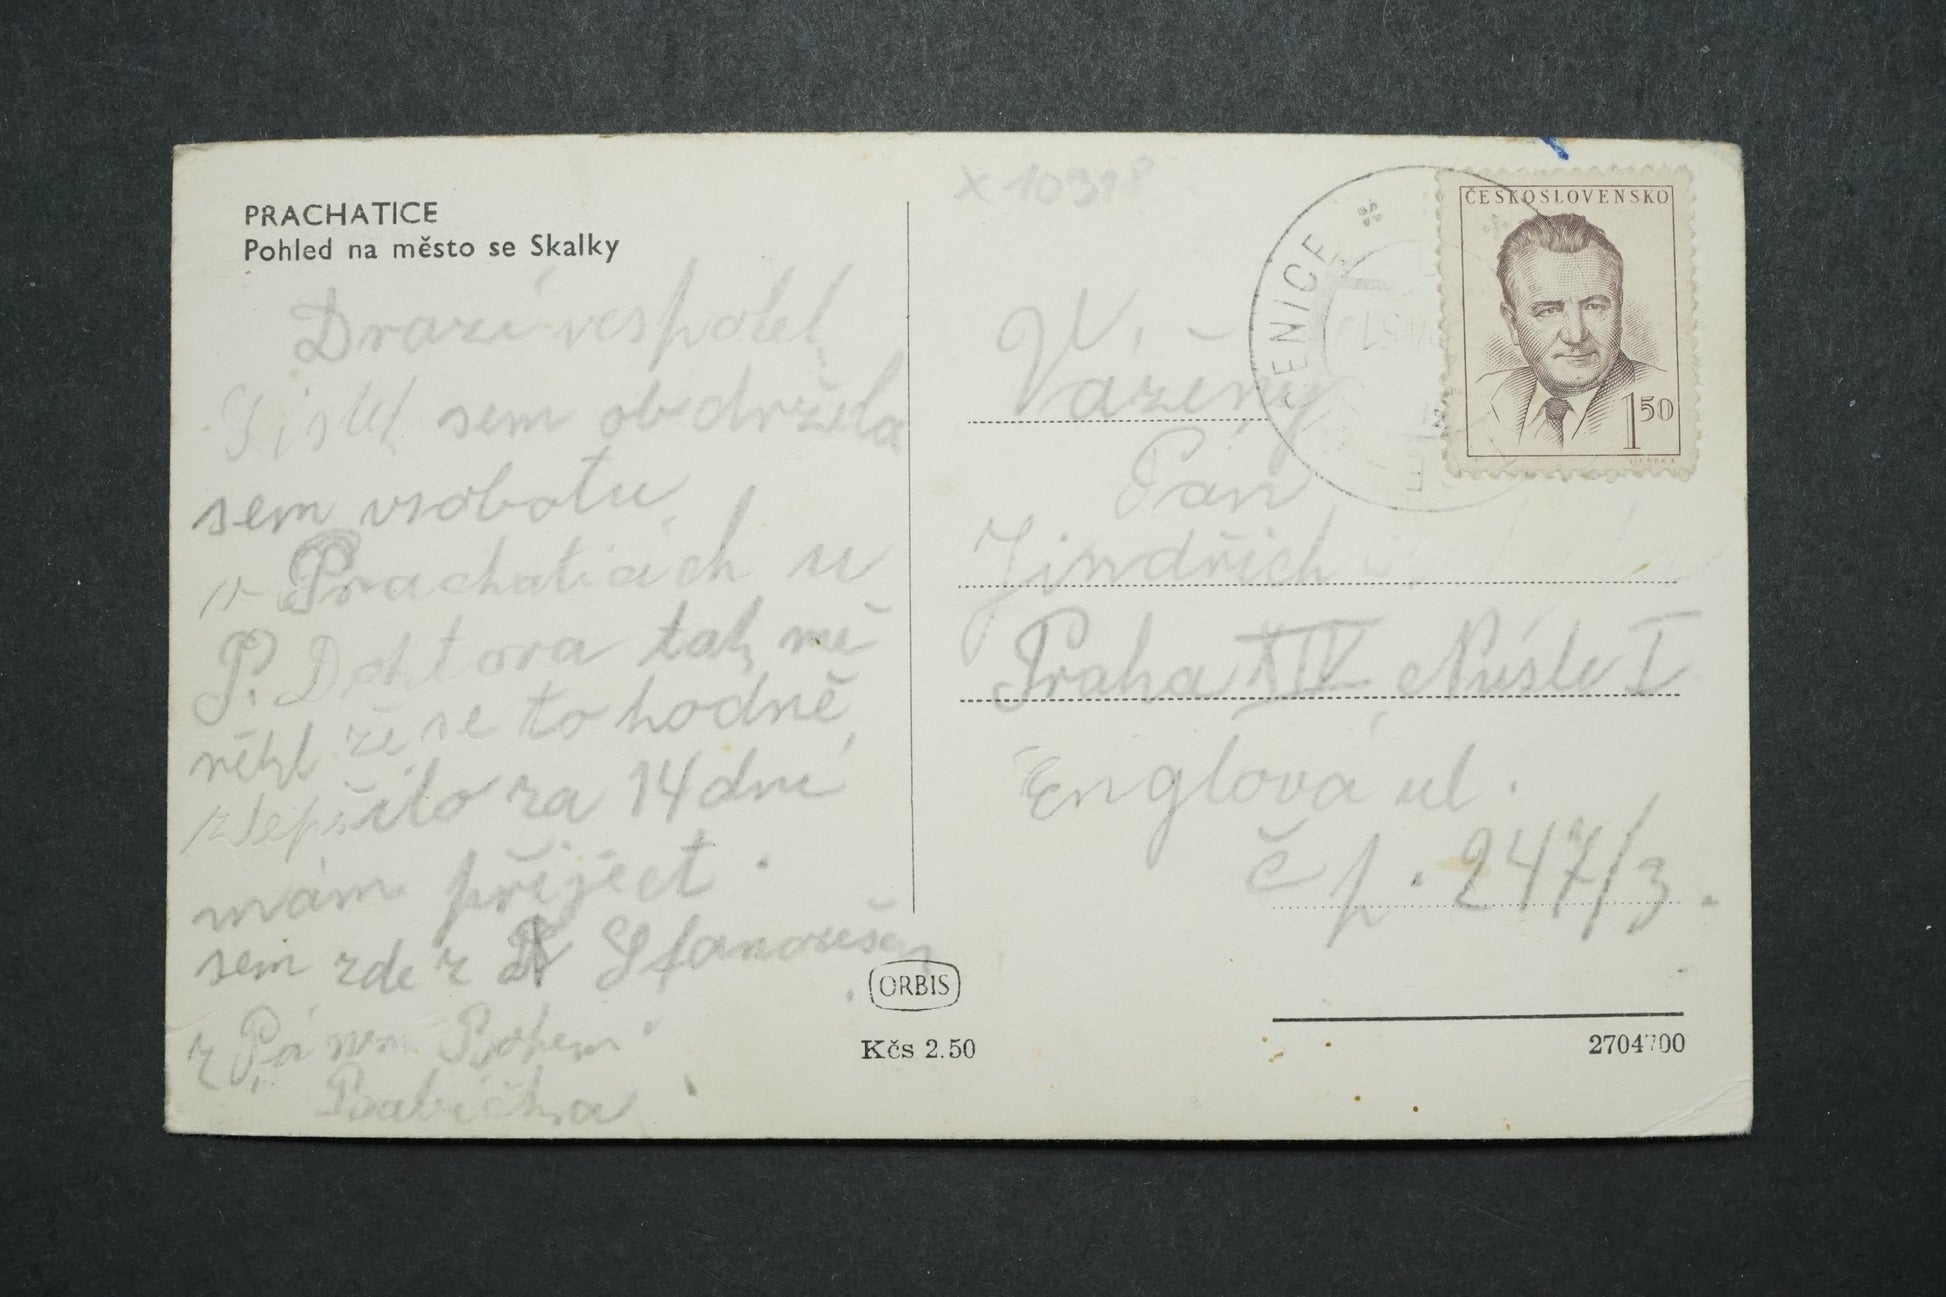 PRACHATICE
Pohled na město se Skalky
Drazí vespolek
Listek sem obdržela
sem vsobotu
v Prachaticích u
P. Doktora tak mě
řekl že se to hodně
zlepšilo za 14 dní
mám přiject.
sem zde z
z Pánem Bohem
Babička
ORBIS
Kčs 2.50
X 10398
ENICE
ČESKOSLOVENSKO
1 50
V.
Vážený
Pán
Jindřich
Praha XIV Nusle I
Englová ul.
č p. 247/3.
2704700